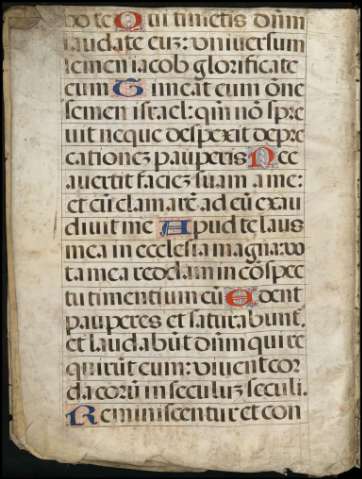 bo te Qui timetis dñm
laudate euz: universum
semen iacob glorificate
eum Timeat eum õne
semen israel: qm̃ nõ spre
vit neque despexit depre
cationez pauperis Nec
avertit faciez suam a me:
et cũ clamarẽ ad eũ exau
divit me Apud te laus
mea in ecclesia magna: vo
ta mea reddam in cõspec
tu timentium eũ Edent
pauperes et saturabunt.
et laudabũt dñm qui re
quirũt eum: vivent cor
da eorũ in seculuz seculi.
Reminiscentur et con